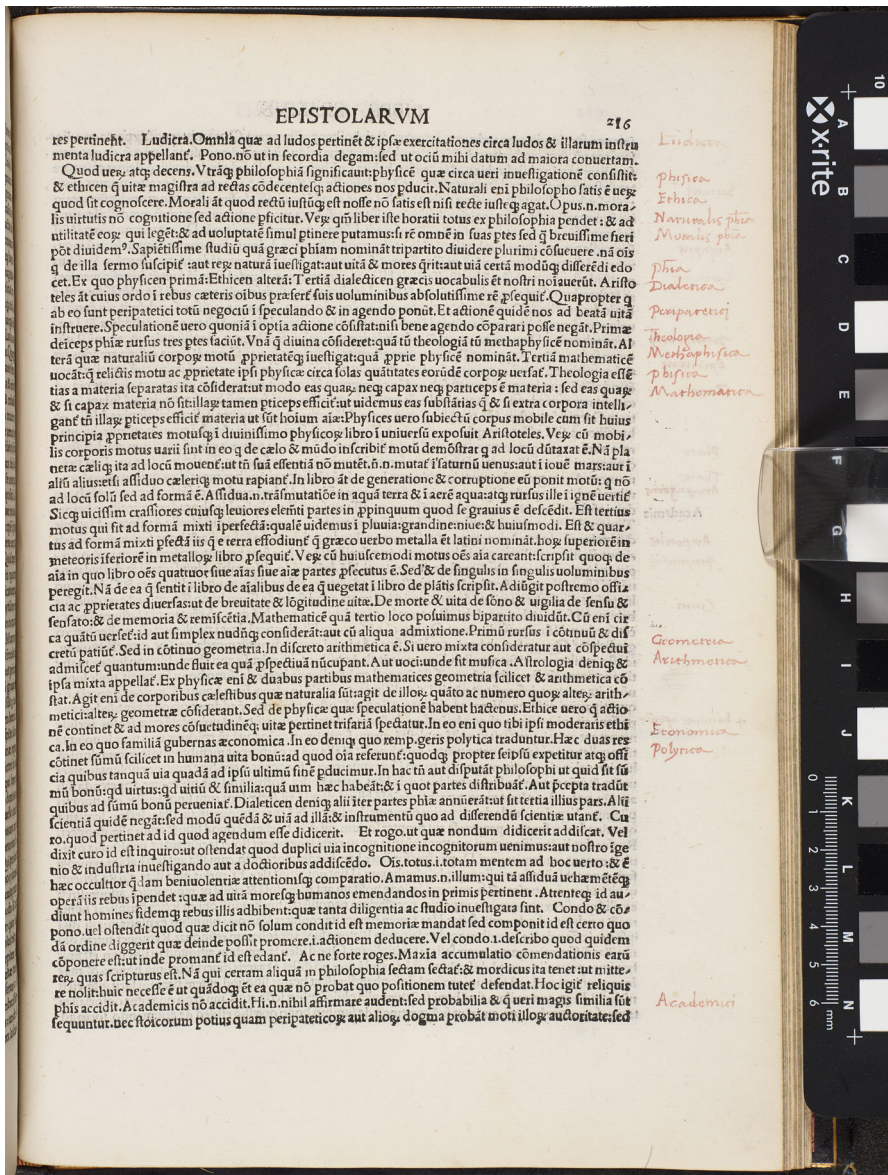 EPISTOLARVM
216
res pertinent. Ludicra. Omnia quæ ad ludos pertinēt & ipsæ exercitationes circa ludos & illarum instru
menta ludicra appellant̃. Pono. nō ut in secordia degam: sed ut ociū mihi datum ad maiora conuertam.
Quod ueꝝ atqꝫ decens. Vtrāqꝫ philosophiā significauit: physicē quæ circa ueri inuestigationē consistit:
& ethicen q̄ uitæ magistra ad rectas cōdecentesqꝫ actiones nos ꝑducit. Naturali eni philosopho satis ē ueꝝ
quod sit cognoscere. Morali āt quod rectū iustūqꝫ est nosse nō satis est nisi recte iusteqꝫ agat. Opus. n. mora-
lis uirtutis nō cognitione sed actione ꝑficitur. Veꝝ qm̄ liber iste horatii totus ex philosophia pendet: & ad
utilitatē eoꝝ qui legēt: & ad uoluptatē simul ꝑtinere putamus: si rē omnē in suas ꝑtes sed q̄ breuissime fieri
pōt diuidemꝰ. Sapiētissime studiū quā græci phiam nomināt tripartito diuidere plurimi cōsueuere. nā oīs
q̄ de illa sermo suscipit̃: aut reꝝ naturā iuestigat: aut uitā & mores q̄rit: aut uiā certā modūqꝫ differēdi edo
cet. Ex quo physicen primā: Ethicen alterā: Tertiā dialecticen græcis uocabulis ēt nostri noīauerūt. Aristo
teles āt cuius ordo ī rebus cæteris oībus præfert̃ suis uoluminibus absolutissime rē ꝓsequit̃. Quapropter q
ab eo sunt peripatetici totū negociū ī speculando & in agendo ponūt. Et actionē quidē nos ad beatā uitā
instruere. Speculationē uero quoniā ī optia actione cōsistat: nisi bene agendo cōparari posse negāt. Primæ
deīceps phiæ rursus tres ꝑtes faciūt. Vnā q̄ diuina cōsideret: quā tū theologiā tū methaphysicē nomināt. Al
terā quæ naturaliū corpoꝝ motū ꝓprietatēqꝫ iuestigat: quā ꝓprie physicē nomināt. Tertiā mathematicē
uocāt: q̄ relictis motu ac ꝓprietate ipsi physicæ circa solas quātitates eorūdē corpoꝝ uersat̃. Theologia essē
tias a materia separatas ita cōsiderat: ut modo eas quaꝝ neqꝫ capax neqꝫ particeps ē materia: sed eas quaꝝ
& si capax materia nō sit: illaꝝ tamen ꝑticeps efficit̃: ut uidemus eas substātias q̄ & si extra corpora intelli-
gant̃ tn̄ illaꝝ ꝑticeps efficit̃ materia ut sūt hoium aīæ: Physices uero subiectū corpus mobile cum sit huius
principia ꝓprietates motusqꝫ ī diuinissimo physicoꝝ libro ī uniuersū exposuit Aristoteles. Veꝝ cū mobi-
lis corporis motus uarii sint in eo q de cælo & mūdo inscribit̃ motū demōstrat q ad locū dūtaxat ē. Nā pla
netæ cæliqꝫ ita ad locū mouent̃: ut tn̄ suā essentiā nō mutēt. n̄. n. mutat̃ ī saturnū uenus: aut ī iouē mars: aut ī
aliū alius: etsi assiduo cæleriqꝫ motu rapiant̃. In libro āt de generatione & corruptione eū ponit motū: q nō
ad locū solū sed ad formā ē. Assidua. n. trāsmutatiōe in aquā terra & ī aerē aqua: atqꝫ rursus ille ī ignē uertit̃
Sicqꝫ uicissim crassiores cuiusqꝫ leuiores elemti partes in ꝓpinquum quod se grauius ē descēdit. Est tertius
motus qui fit ad formā mixti īperfectā: qualē uidemus ī pluuia: grandine: niue: & huiusmodi. Est & quar-
tus ad formā mixti ꝑfectā iis q̄ e terra effodiunt̃ q̄ græco uerbo metalla ēt latini nomināt. hoꝝ superiorē in
meteoris īferiorē in metalloꝝ libro ꝓsequit̃. Veꝝ cū huiuscemodi motus oēs aīa careant: scripsit quoqꝫ de
aīa in quo libro oēs quattuor siue aīas siue aīæ partes ꝓsecutus ē. Sed & de singulis in singulis uoluminibus
peregit. Nā de ea q̄ sentit ī libro de aīalibus de ea q̄ uegetat ī libro de plātis scripsit. Adiūgit postremo offi-
cia ac ꝓprietates diuersas: ut de breuitate & lōgitudine uitæ. De morte & uita de sōno & uigilia de sensu &
sensato: & de memoria & remiscētia. Mathematicē quā tertio loco posuimus bipartito diuidūt. Cū eni cir
ca quātū uerset̃: id aut simplex nudūqꝫ considerāt: aut cū aliqua admixtione. Primū rursus ī cōtinuū & dis
cretū patiūt̃. Sed in cōtinuo geometria. In discreto arithmetica ē. Si uero mixta consideratur aut cōspectui
admiscet̃ quantum: unde fluit ea quā ꝓspectiuā nūcupant. Aut uoci: unde fit musica. Astrologia deniqꝫ &
ipsa mixta appellat̃. Ex physicæ eni & duabus partibus mathematices geometria scilicet & arithmetica cō
stat. Agit eni de corporibus cælestibus quæ naturalia sūt: agit de illoꝝ quāto ac numero quoꝝ alteꝝ arith-
metici: alteꝝ geometræ cōsiderant. Sed de physicæ quæ speculationē habent hactenus. Ethice uero q̄ actio
nē continet & ad mores cōsuetudinēqꝫ uitæ pertinet trifariā spectatur. In eo eni quo tibi ipsi moderaris ethi
ca. In eo quo familiā gubernas æconomica. In eo deniqꝫ quo remp. geris polytica traduntur. Hæc duas res
cōtinet sūmū scilicet in humana uita bonū: ad quod oīa referunt̃: quodqꝫ propter seipsū expetitur atqꝫ offi
cia quibus tanquā uia quadā ad ipsū ultimū finē ꝑducimur. In hac tn̄ aut disputāt philosophi ut quid sit sū
mū bonū: qd uirtus: qd uitiū & similia: quā uim hæc habeāt: & ī quot partes distribuāt̃. Aut ꝑcepta tradūt
quibus ad sūmū bonū perueniat̃. Dialeticen deniqꝫ alii īter partes phiæ annūerāt: ut sit tertia illius pars. Alii
scientiā quidē negāt: sed modū quēdā & uiā ad illā: & instrumentū quo ad differendū scientiæ utant̃. Cu
ro. quod pertinet ad id quod agendum esse didicerit. Et rogo. ut quæ nondum didicerit addiscat. Vel
dixit curo id est inquiro: ut ostendat quod duplici uia incognitione incognitorum uenimus: aut nostro īge
nio & industria inuestigando aut a doctioribus addiscēdo. Oīs. totus. i. totam mentem ad hoc uerto: & ē
hæc occultior q̄dam beniuolentiæ attentionisqꝫ comparatio. Amamus. n. illum: qui tā assiduā uehæmētēqꝫ
operā iis rebus īpendet: quæ ad uitā moresqꝫ humanos emendandos in primis pertinent. Attenteqꝫ id au-
diunt homines fidemqꝫ rebus illis adhibent: quæ tanta diligentia ac studio inuestigata sint. Condo & cō-
pono. uel ostendit quod quæ dicit nō solum condit id est memoriæ mandat sed componit id est certo quo
dā ordine diggerit quæ deinde possit promere. i. actionem deducere. Vel condo. i. describo quod quidem
cōponere est: ut inde promant̃ id est edant̃. Ac ne forte roges. Maxīa accumulatio cōmendationis earū
reꝝ quas scripturus est. Nā qui certam aliquā in philosophia sectam sectat̃: & mordicus ita tenet: ut mitte-
re nolit: huic necesse ē ut quādoqꝫ ēt ea quæ nō probat quo positionem tutet̃ defendat. Hoc igit̃ reliquis
phis accidit. Academicis nō accidit. Hi. n. nihil affirmare audent: sed probabilia & q̄ ueri magis similia sūt
sequuntur. nec stoicorum potius quam peripateticoꝝ aut alioꝝ dogma probāt moti illoꝝ auctoritate: sed
Ludicra
phisica
Ethica
Naturalis phia
Moralis phia
phia
Dialetica
Peripatetici
Theologia
Methaphisica
phisica
Mathematica
Geometria
Arithmetica
Economica
Polytica
Academici
x·rite
10
A
B
C
D
E
F
G
H
I
J
K
L
M
N
0
1
2
3
4
5
6
mm